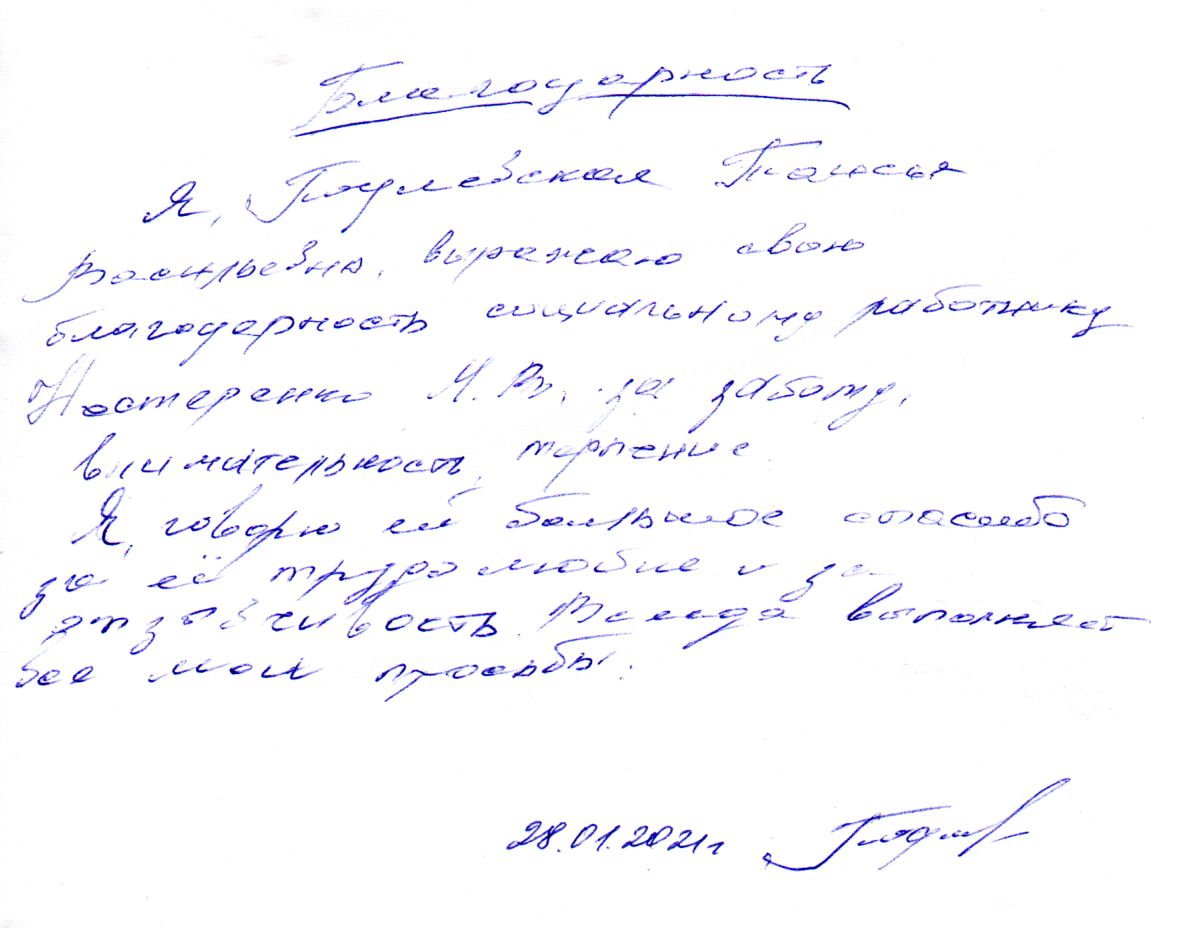 Благодарность
Я, Таисья
Васильевна, выражаю свою
благодарность социальному работнику
Нестеренко М.В. за заботу,
внимательность, терпение.
Я, говорю ей большое спасибо
за её трудолюбие и за
отзывчивость. Всегда выполняет
все мои просьбы.
28.01.2021г